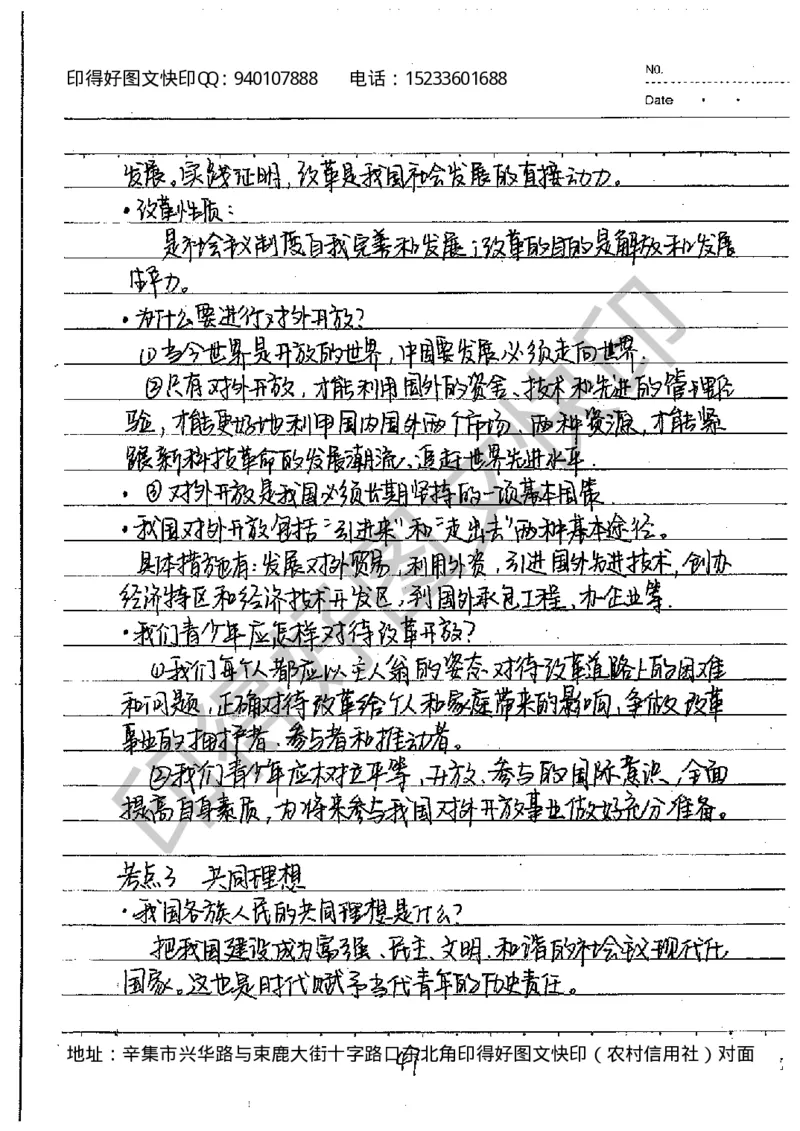 印得好图文快印QQ：940107888 电话：15233601688
No.
Date
发展。实践证明，改革是我国社会发展的直接动力。
·改革性质：
是社会主义制度自我完善和发展；改革的目的是解放和发展
生产力。
·为什么要进行对外开放？
①当今世界是开放的世界，中国要发展必须走向世界.
②只有对外开放，才能利用国外的资金、技术和先进的管理经
验，才能更好地利用国内国外两个市场、两种资源，才能紧
跟新科技革命的发展潮流、追赶世界先进水平.
·③对外开放是我国必须长期坚持的一项基本国策.
·我国对外开放包括"引进来"和"走出去"两种基本途径。
具体措施有：发展对外贸易，利用外资，引进国外先进技术，创办
经济特区和经济技术开发区，到国外承包工程、办企业等.
·我们青少年应怎样对待改革开放？
①我们每个人都应以主人翁的姿态对待改革道路上的困难
和问题，正确对待改革给个人和家庭带来的影响，争做改革
事业的拥护者、参与者和推动者。
②我们青少年应树立平等、开放、参与的国际意识，全面
提高自身素质，为将来参与我国对外开放事业做好充分准备。
考点3 共同理想
·我国各族人民的共同理想是什么？
把我国建设成为富强、民主、文明、和谐的社会主义现代化
国家。这也是时代赋予当代青年的历史责任。
地址：辛集市兴华路与束鹿大街十字路口东北角印得好图文快印（农村信用社）对面
印得好图文快印